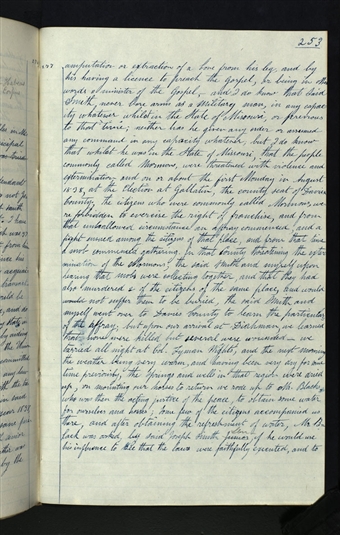 253
amputation or extraction of a bone from his leg, and by
his having a licence to preach the Gospel, or being in other
words a minister of the Gospel, and I do know that said
Smith, never bore arms as a Military man, in any capac-
ity whatever whilst in the State of Missouri, or previous
to that time; neither has he given any order or assumed
any command in any capacity whatever, but I do know
that whilst he was in the State of Missouri, that the people
commonly called Mormons, were threatened with violence and
extermination, and on or about the first Monday in August
1838, at the Election at Gallatin, the county seat of Davies
County, the citizens who were commonly called Mormons, we-
re forbidden to exercise the right of franchise, and from
that unhallowed circumstance an affray commenced, and a
fight ensued among the citizens of that place, and from that time
a mob commenced gathering in that county threatening the exter-
mination of the Mormons; the said Smith and myself upon
hearing that mobs were collecting together and that they had
also murdered 2 of the citizens of the same place, and would
would not suffer them to be buried, the said Smith and
myself went over to Davies County to learn the particulars
of the affray, but upon our arrival at Diahman, we learned
that none were killed but several were wounded - we
tarried all night at Col. Lyman Wight's, and the next morning
the weather being very warm, and having been very dry for some
time previously; the springs and wells in that region were dried
up, on mounting our horses to return we rode up to Mr. Black's
who was then the acting justice of the peace, to obtain some water
for ourselves and horses; some few of the citizens accompanied us
there, and after obtaining the refreshment of water, Mr. B-
lack was asked, by said Joseph Smith Senior, if he would use
his influence to see that the laws were faithfully executed, and to